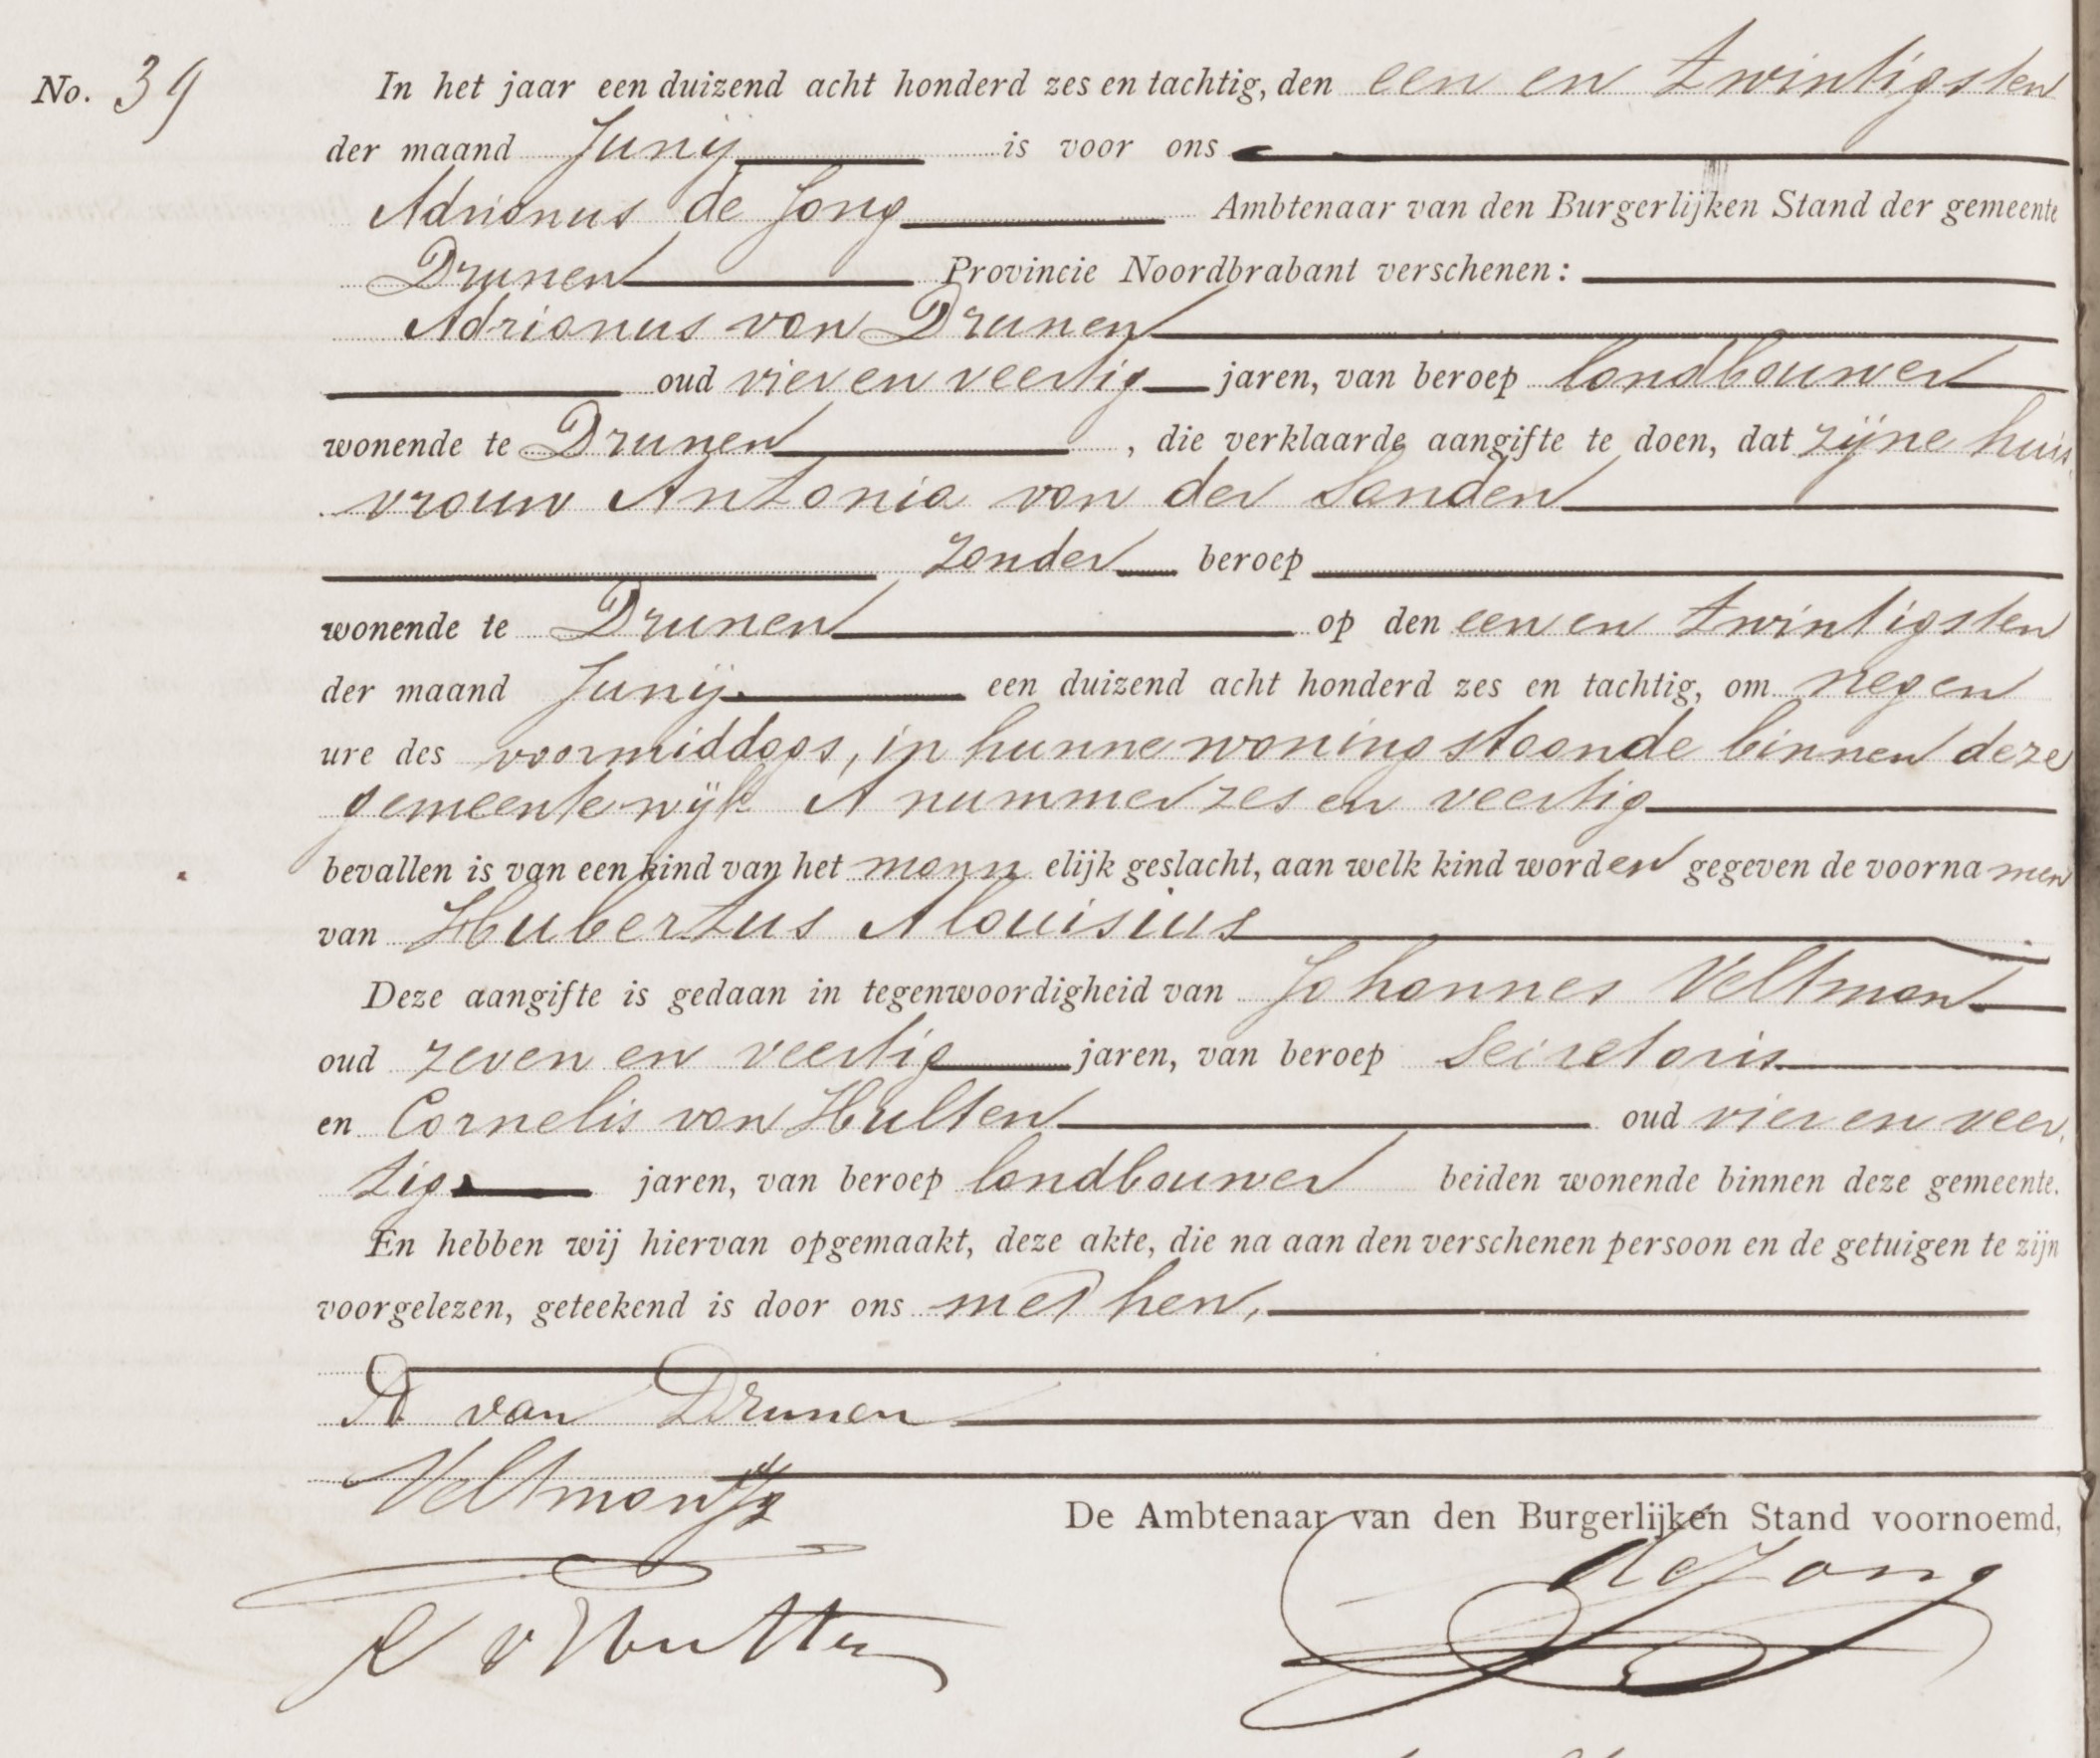 No. 39
In het jaar een duizend acht honderd zes en tachtig, den een en twintigsten
der maand Junij is voor ons
Adrianus de Jong Ambtenaar van den Burgerlijken Stand der gemeente
Drunen Provincie Noordbrabant verschenen:
Adrianus van Drunen
oud vier en veertig jaren, van beroep landbouwer
wonende te Drunen, die verklaarde aangifte te doen, dat zijne huis
vrouw Antonia van der Sanden
zonder beroep
wonende te Drunen op den een en twintigsten
der maand Junij een duizend acht honderd zes en tachtig, om negen
ure des voormiddags, in hunne woning staande binnen deze
gemeente wijk A nummer zes en veertig
bevallen is van een kind van het mannelijk geslacht, aan welk kind worden gegeven de voornamen
van Hubertus Alouisius
Deze aangifte is gedaan in tegenwoordigheid van Johannes Veltman
oud zeven en veertig jaren, van beroep Secretaris
en Cornelis van Hulten oud vier en veer
tig jaren, van beroep landbouwer beiden wonende binnen deze gemeente.
En hebben wij hiervan opgemaakt, deze akte, die na aan den verschenen persoon en de getuigen te zijn
voorgelezen, geteekend is door ons met hen,
A van Drunen
Veltman
De Ambtenaar van den Burgerlijken Stand voornoemd,
de Jong
C v Hulten